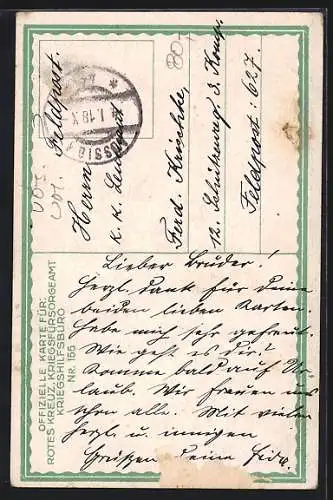 Feldpost.
Herrn
k. k. Leutnant
Ferd. Krischke,
12. Schützenreg. 3. Komp.
Feldpost: 627.
80-
OFFIZIELLE KARTE FÜR:
ROTES KREUZ, KRIEGSFÜRSORGEAMT
KRIEGSHILFSBÜRO
Nr. 155
Lieber Bruder!
Herzl. Dank für Deine
beiden lieben Karten.
Habe mich sehr gefreut.
Wie geht es dir?
Komme bald auf Ur-
laub. Wir freuen uns
schon alle. Mit vielen
herzl. u. innigen
Grüßen Deine